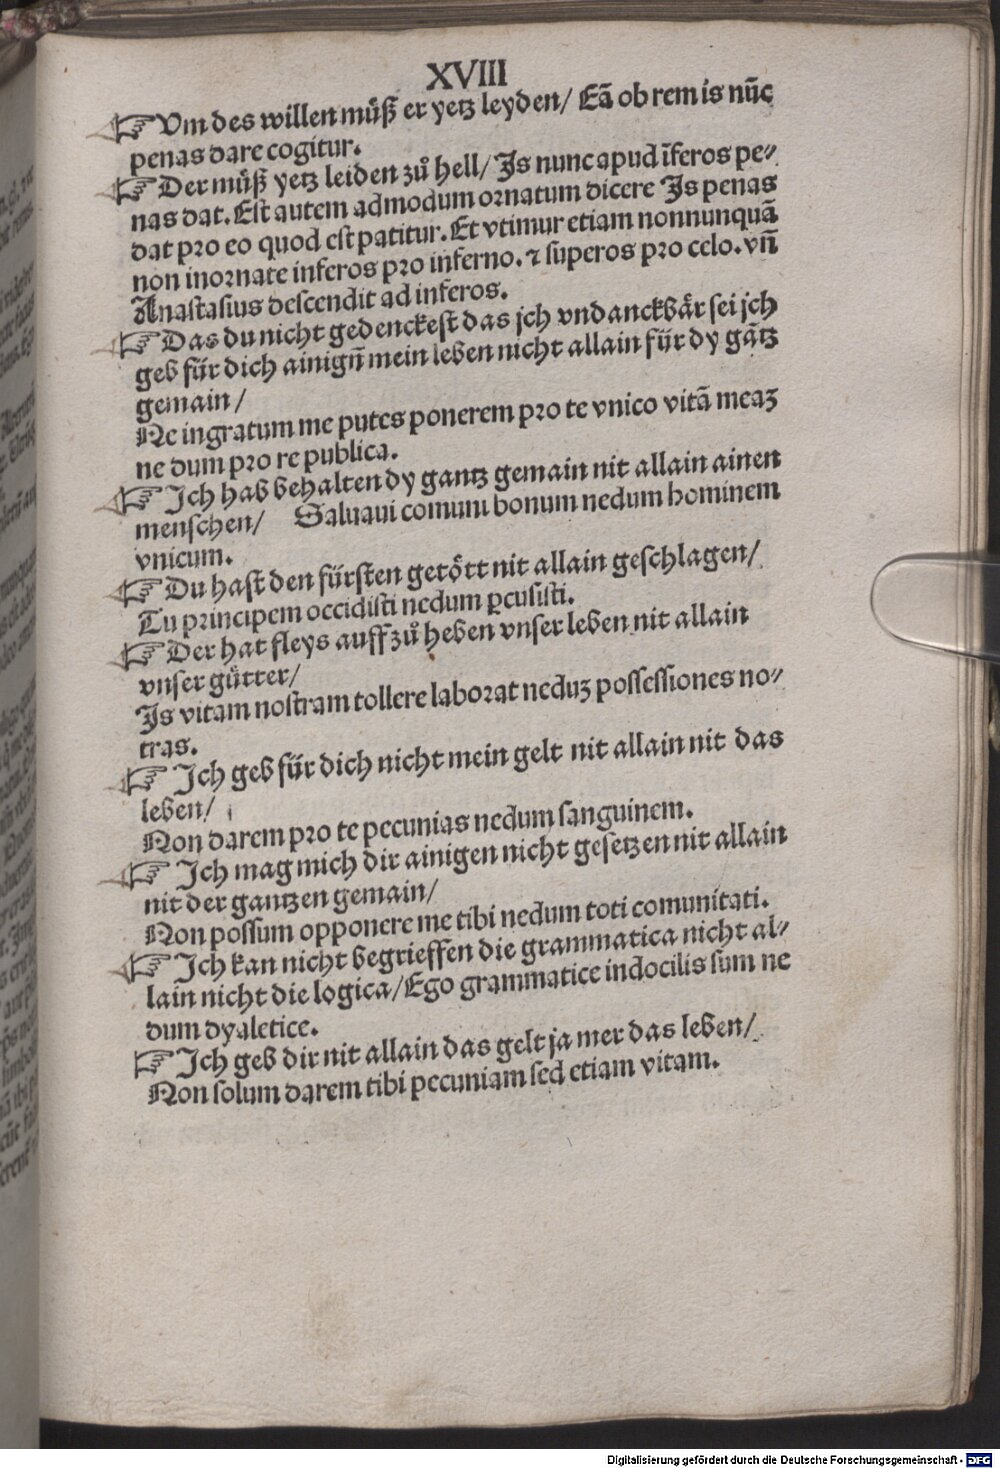 XVIII
☞ Vm des willen müß er yetz leyden/ Eā ob rem is nūc
penas dare cogitur.
☞ Der müß yetz leiden zů hell/ Js nunc apud īferos pe⸗
nas dat. Est autem admodum ornatum dicere Js penas
dat pro eo quod est patitur. Et vtimur etiam nonnunquā
non inornate inferos pro inferno. ⁊ superos pro celo. vn̄
Anastasius descendit ad inferos.
☞ Das du nicht gedenckest das jch vndanckbår sei jch
geb für dich ainign̄ mein leben nicht allain für dy gātz
gemain/
Ne ingratum me putes ponerem pro te vnico vitā meaꝫ
ne dum pro re publica.
☞ Jch hab behalten dy gantz gemain nit allain ainen
menschen/ Saluaui comuni bonum nedum hominem
vnicum.
☞ Du hast den fürsten getött nit allain geschlagen/
Tu principem occidisti nedum ꝑcusisti.
☞ Der hat fleys auff zů heben vnser leben nit allain
vnser gütter/
Js vitam nostram tollere laborat neduꝫ possessiones no⸗
tras.
☞ Jch geb für dich nicht mein gelt nit allain nit das
leben/
Non darem pro te pecunias nedum sanguinem.
☞ Jch mag mich dir ainigen nicht gesetzen nit allain
nit der gantzen gemain/
Non possum opponere me tibi nedum toti comunitati.
☞ Jch kan nicht begrieffen die grammatica nicht al⸗
lain nicht die logica/ Ego grammatice indocilis sum ne
dum dyaletice.
☞ Jch geb dir nit allain das gelt ja mer das leben/
Non solum darem tibi pecuniam sed etiam vitam.
Digitalisierung gefördert durch die Deutsche Forschungsgemeinschaft - DFG